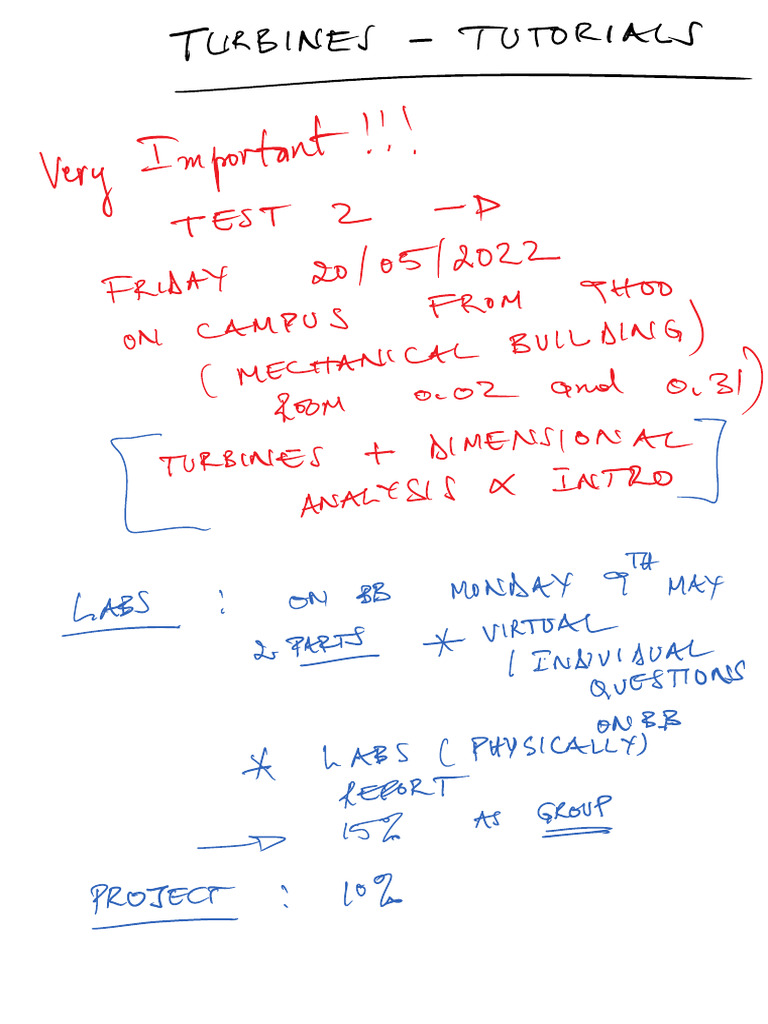 TURBINES - TUTORIALS
Very Important!!!
TEST 2 →
FRIDAY 20/05/2022
ON CAMPUS FROM 9H00
(MECHANICAL BUILDING)
ROOM 0.02 and 0.31)
[TURBINES + DIMENSIONAL
ANALYSIS & INTRO]
LABS : ON BB MONDAY 9TH MAY
2 PARTS * VIRTUAL
(INDIVIDUAL
QUESTIONS
ON BB
* LABS (PHYSICALLY)
REPORT
→ 15% AS GROUP
PROJECT : 10%